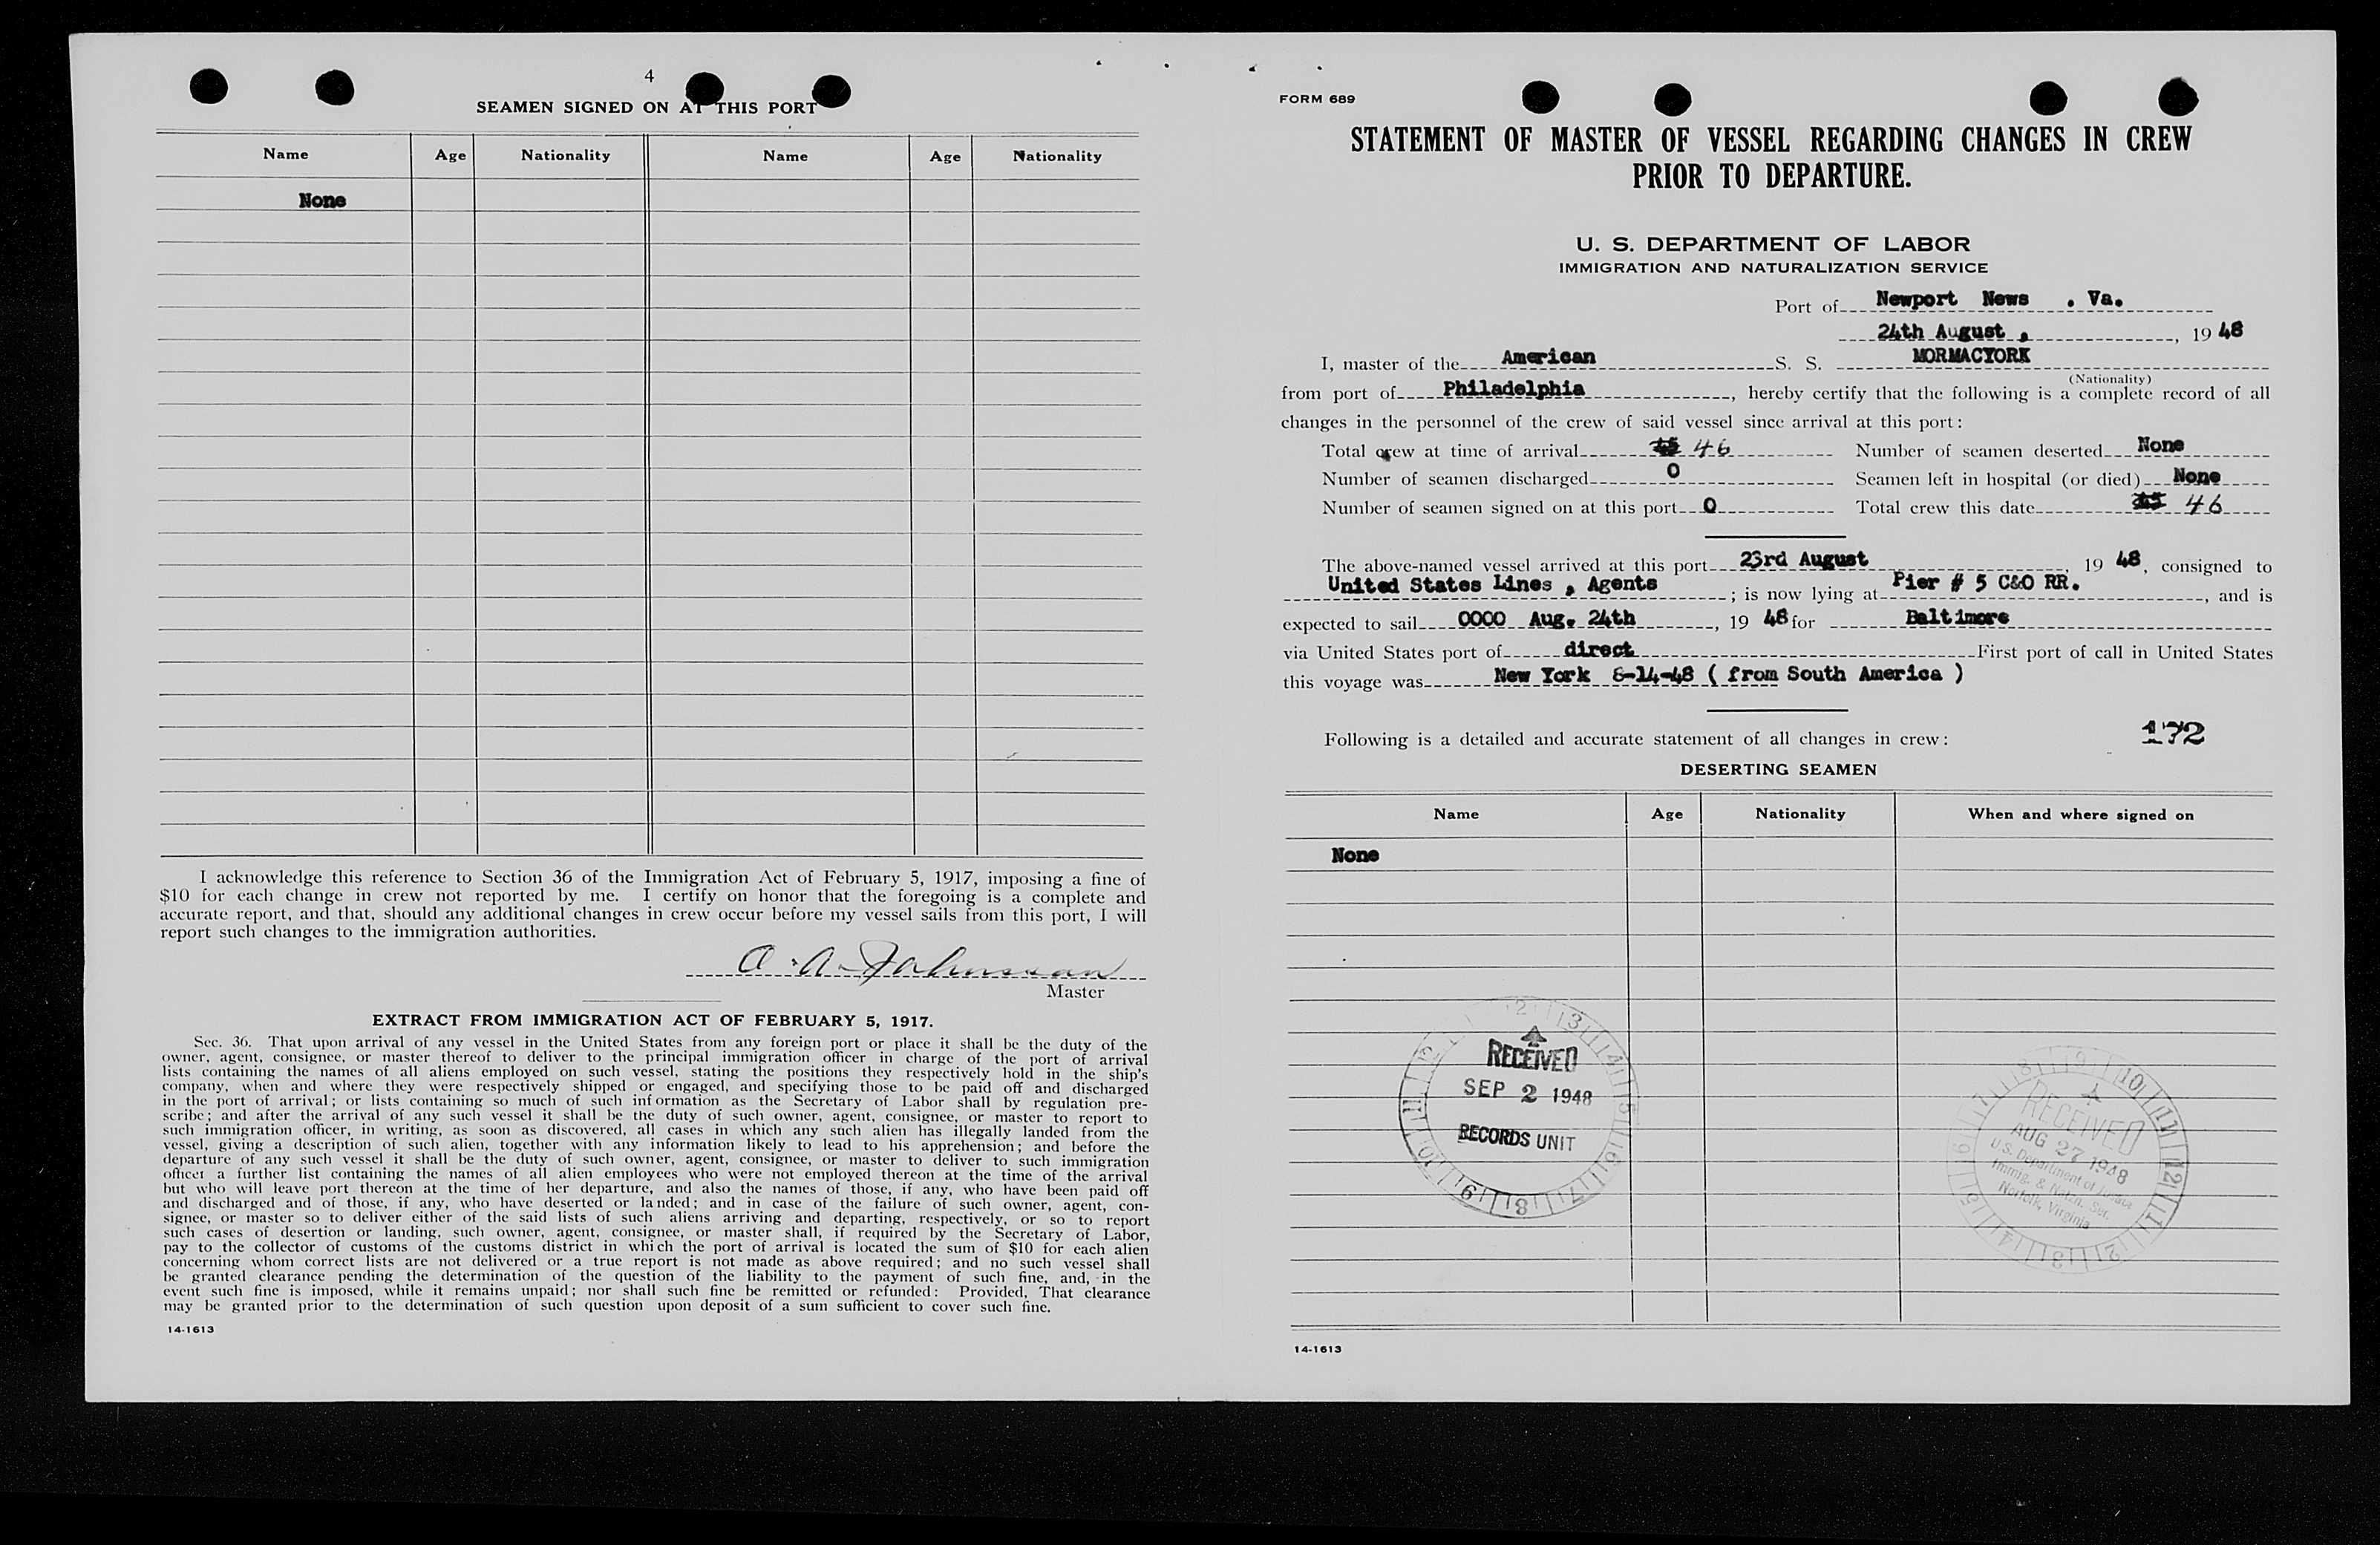 4
SEAMEN SIGNED ON AT THIS PORT
Name Age Nationality Name Age Nationality
None
I acknowledge this reference to Section 36 of the Immigration Act of February 5, 1917, imposing a fine of
$10 for each change in crew not reported by me. I certify on honor that the foregoing is a complete and
accurate report, and that, should any additional changes in crew occur before my vessel sails from this port, I will
report such changes to the immigration authorities.
O. A. Johnson
Master
EXTRACT FROM IMMIGRATION ACT OF FEBRUARY 5, 1917.
Sec. 36. That upon arrival of any vessel in the United States from any foreign port or place it shall be the duty of the
owner, agent, consignee, or master thereof to deliver to the principal immigration officer in charge of the port of arrival
lists containing the names of all aliens employed on such vessel, stating the positions they respectively hold in the ship's
company, when and where they were respectively shipped or engaged, and specifying those to be paid off and discharged
in the port of arrival; or lists containing so much of such information as the Secretary of Labor shall by regulation pre-
scribe; and after the arrival of any such vessel it shall be the duty of such owner, agent, consignee, or master to report to
such immigration officer, in writing, as soon as discovered, all cases in which any such alien has illegally landed from the
vessel, giving a description of such alien, together with any information likely to lead to his apprehension; and before the
departure of any such vessel it shall be the duty of such owner, agent, consignee, or master to deliver to such immigration
officer a further list containing the names of all alien employees who were not employed thereon at the time of the arrival
but who will leave port thereon at the time of her departure, and also the names of those, if any, who have been paid off
and discharged and of those, if any, who have deserted or landed; and in case of the failure of such owner, agent, con-
signee, or master so to deliver either of the said lists of such aliens arriving and departing, respectively, or so to report
such cases of desertion or landing, such owner, agent, consignee, or master shall, if required by the Secretary of Labor,
pay to the collector of customs of the customs district in which the port of arrival is located the sum of $10 for each alien
concerning whom correct lists are not delivered or a true report is not made as above required; and no such vessel shall
be granted clearance pending the determination of the question of the liability to the payment of such fine, and, in the
event such fine is imposed, while it remains unpaid; nor shall such fine be remitted or refunded: Provided, That clearance
may be granted prior to the determination of such question upon deposit of a sum sufficient to cover such fine.
14-1613
FORM 689
STATEMENT OF MASTER OF VESSEL REGARDING CHANGES IN CREW
PRIOR TO DEPARTURE.
U. S. DEPARTMENT OF LABOR
IMMIGRATION AND NATURALIZATION SERVICE
Port of Newport News . Va.
24th August , , 19 48
I, master of the American S. S. MORMACYORK
(Nationality)
from port of Philadelphia , hereby certify that the following is a complete record of all
changes in the personnel of the crew of said vessel since arrival at this port:
Total crew at time of arrival 46 Number of seamen deserted None
Number of seamen discharged 0 Seamen left in hospital (or died) None
Number of seamen signed on at this port 0 Total crew this date 46
The above-named vessel arrived at this port 23rd August , 19 48, consigned to
United States Lines , Agents ; is now lying at Pier # 5 C&O RR. , and is
expected to sail 0000 Aug. 24th , 19 48 for Baltimore
via United States port of direct First port of call in United States
this voyage was New York 8-14-48 ( from South America )
Following is a detailed and accurate statement of all changes in crew: 172
DESERTING SEAMEN
Name Age Nationality When and where signed on
None
RECEIVED
SEP 2 1948
RECORDS UNIT
RECEIVED
AUG 27 1948
U.S. Department of Justice
Immig. & Natzn. Ser.
Norfolk, Virginia
14-1613